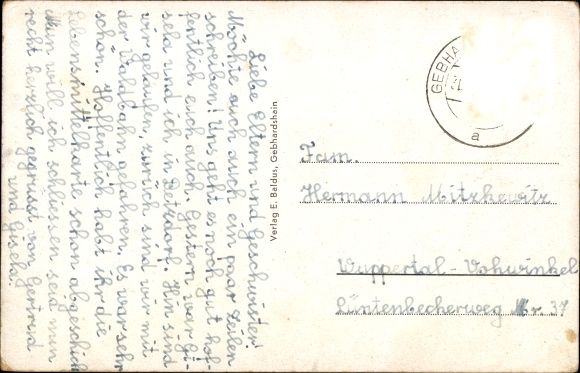 Liebe Eltern und Geschwister!
Möchte euch auch ein paar Zeilen
schreiben! Uns geht es noch gut hof-
fentlich euch auch. Gestern war Gi-
sela und ich in Betzdorf. Hin sind
wir gelaufen, zurück sind wir mit
der Waldbahn gefahren. Es war sehr
schön. Hoffentlich habt ihr die
Lebensmittelkarte schon abgeschickt
Nun will ich schliessen seid nun
recht herzlich gegrüsst von Gertrud
und Gisela.
Verlag E. Baldus, Gebhardshain
GEBHA
a
Fam.
Hermann Mitzkewitz
Wuppertal-Vohwinkel
Lüntenbecherweg Nr. 37